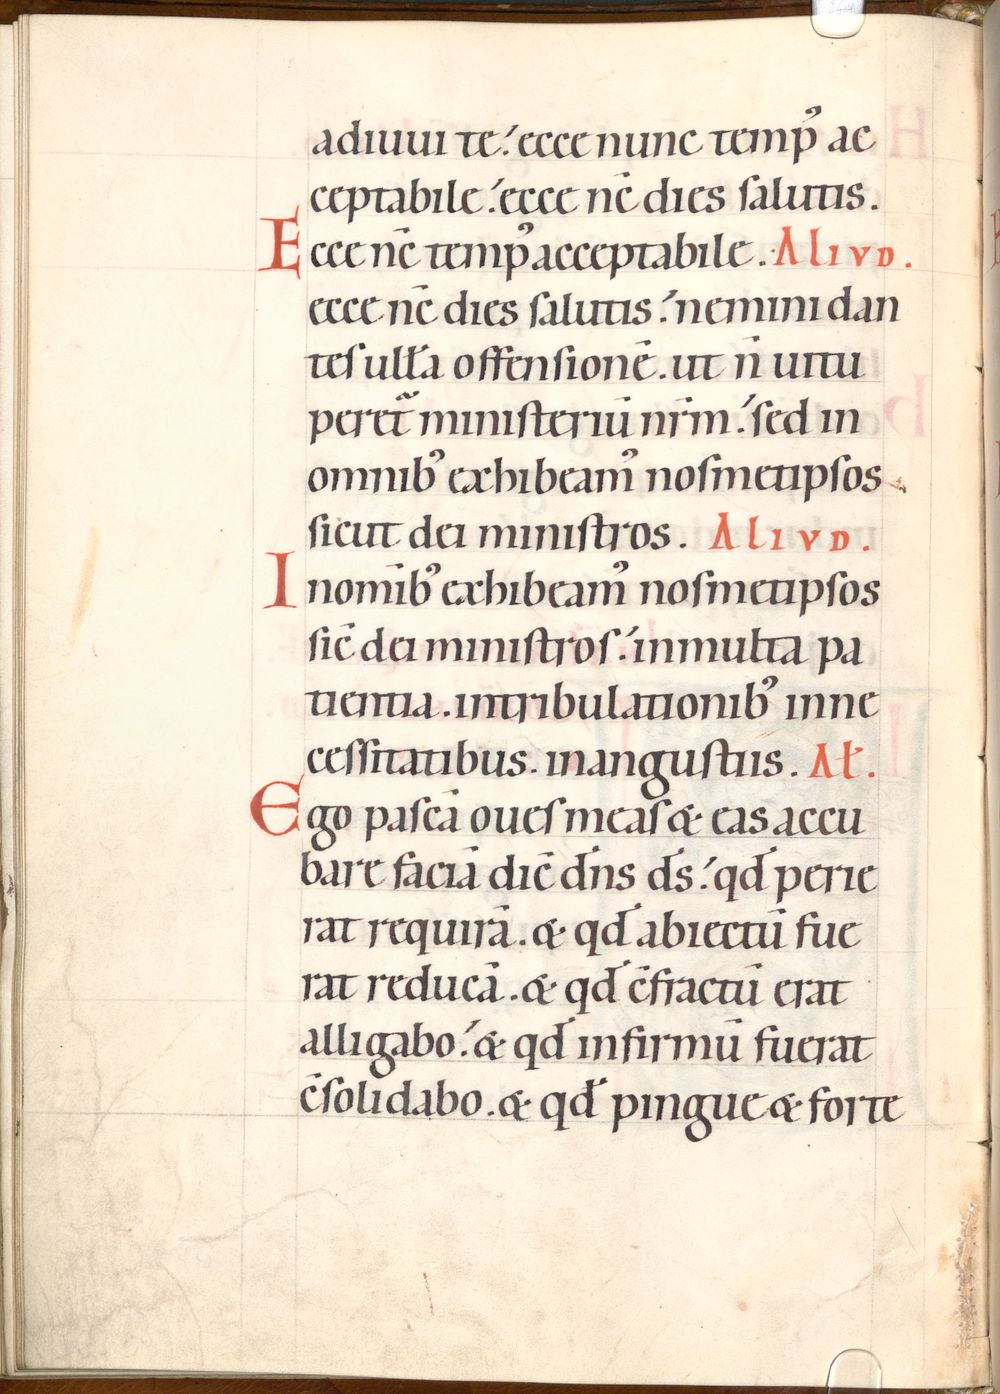 adiuui te. ecce nunc tempꝰ ac
ceptabile. ecce nc̄ dies salutis.
Ecce nc̄ tempꝰ acceptabile. ALIVD.
ecce nc̄ dies salutis. nemini dan
tes ullā offensionē. ut n̄ uitu
peret᷑ ministeriū nr̄m. sed in
omnibꝰ exhibeamꝰ nosmetipsos
sicut dei ministros. ALIVD.
In om̄ibꝰ exhibeamꝰ nosmetipsos
sic̄ dei ministros. in multa pa
tientia. in tribulationibꝰ in ne
cessitatibus. in angustiis. Al̄.
Ego pascā oues meas & eas accu
bare faciā dic̄ dn̄s ds̄. qd̄ perie
rat requirā. & qd̄ abiectū fue
rat reducā. & qd̄ c̄fractū erat
alligabo. & qd̄ infirmū fuerat
c̄solidabo. & qd̄ pingue & forte